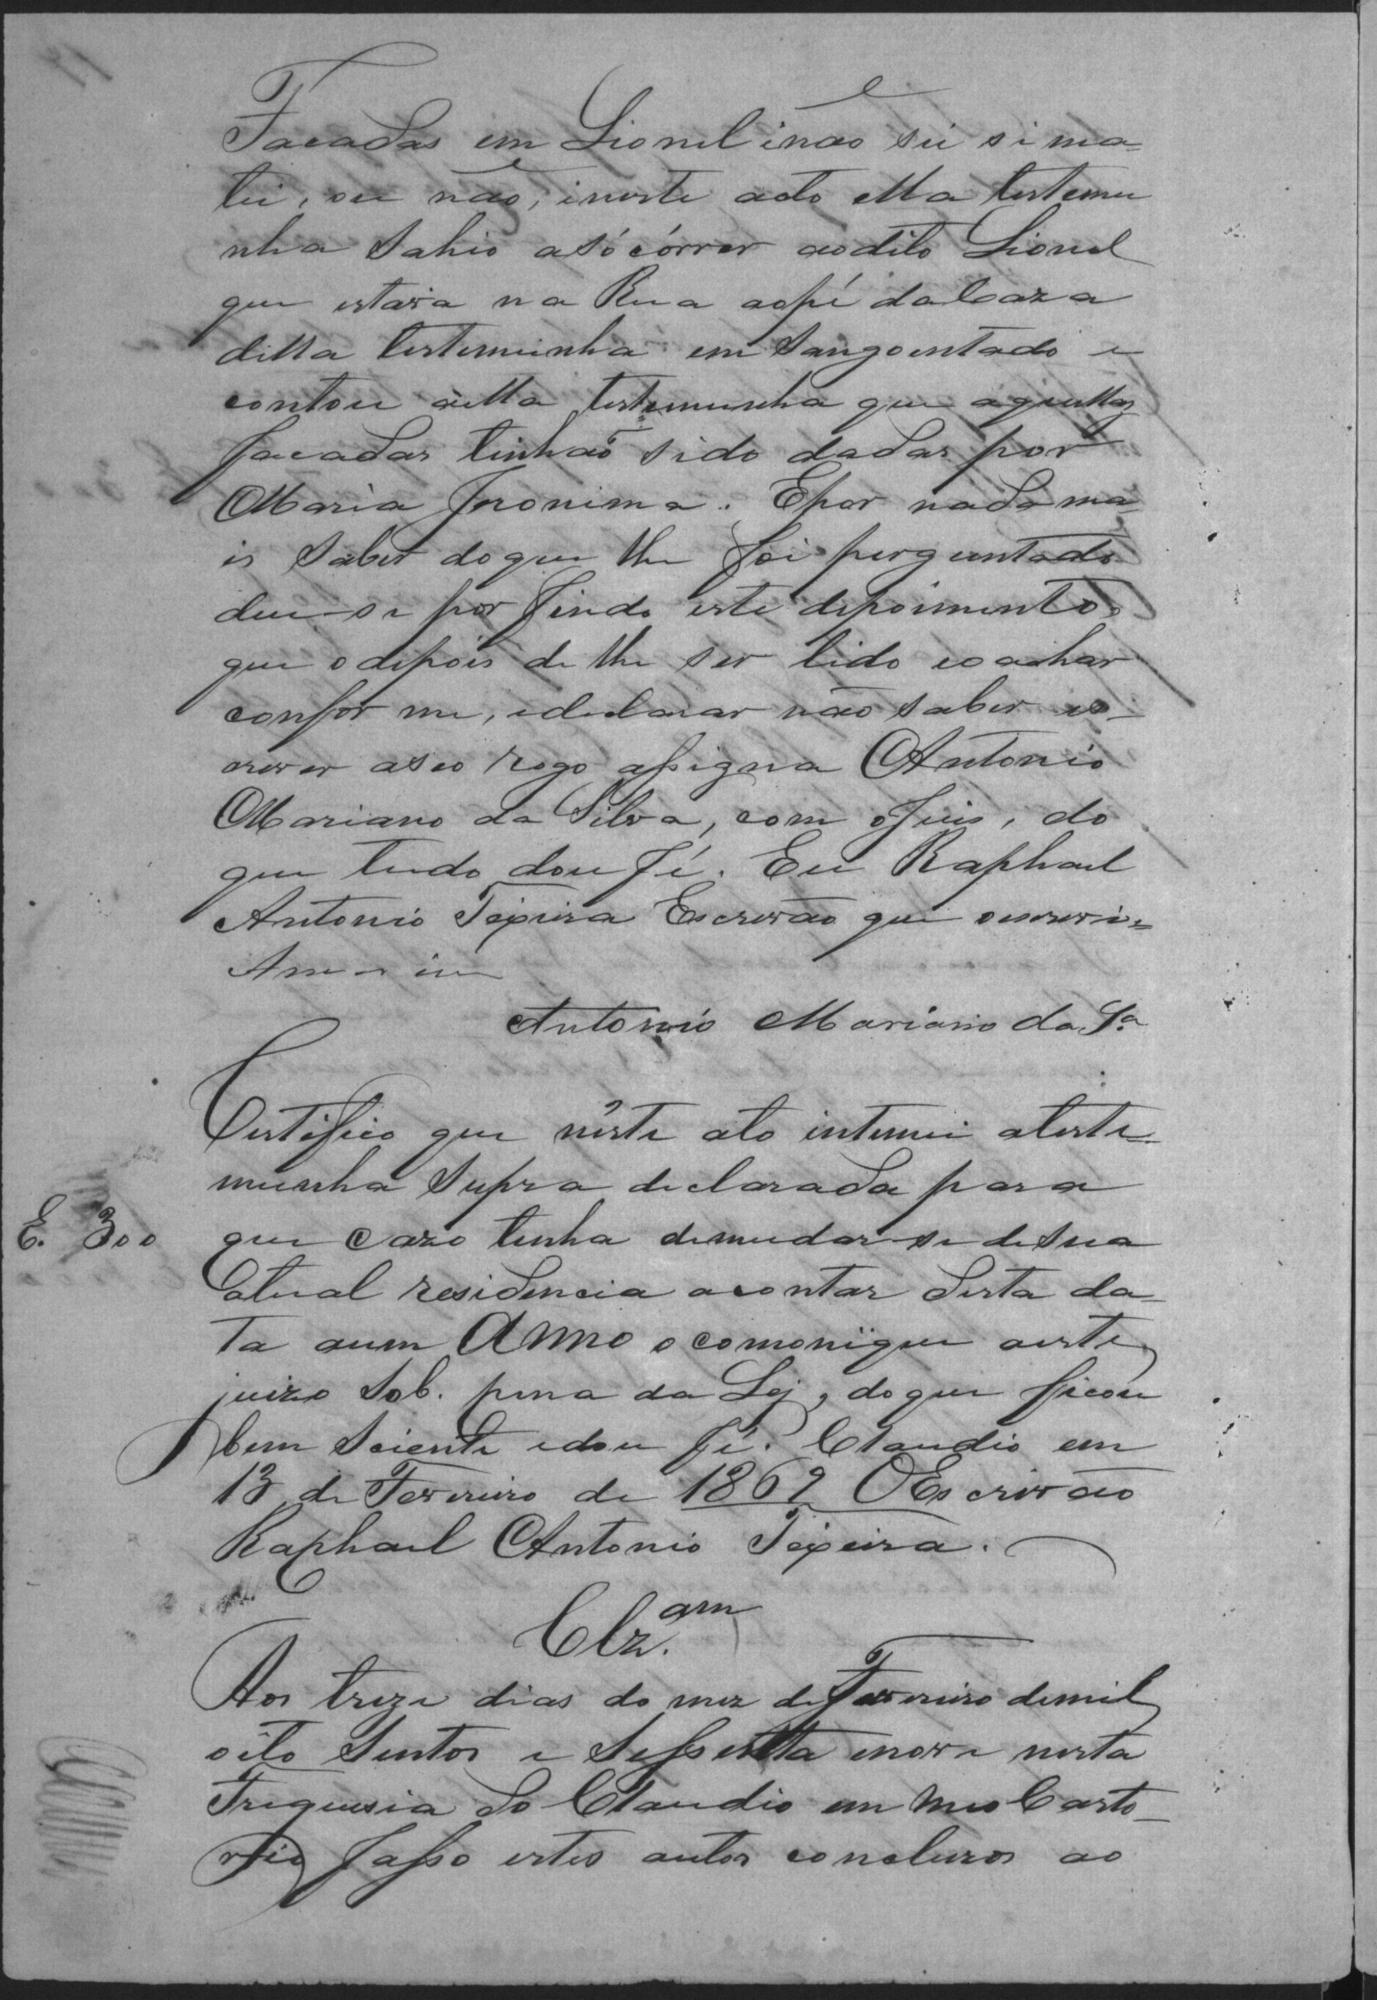 Facadas em Lionel i não sei si ma-
tei, ou não, i neste acto ella testemu
nha sahio a sócórrer ao dito Lionel
que estava na Rua ao pé da Caza
ditta testeminha em sangoentado e
contou àella testemunha que aquellas
facadas tinhaõ sido dadas por
Maria Jeronima. E por nada ma
is saber do que lhe foi perguntado
deu-se por findo este depoimento.
que o depois de lhe ser lido eo achar
confor me, e declarar não saber es-
crever a seo rogo assigna Antonio
Mariano da Silva, com o Juis, do
que tudo dou fé. Eu Raphael
Antonio Teixeira Escrivão que o escrevi=
Antonio Mariano da Sª
Certifico que nêste ato intemei a teste-
munha supra declarada para
E. 300 que cazo tenha de mudar-se de sua
atual residencia a contar desta da-
ta aum Anno o comonique a este
juizo sob. pena da Lej, do que ficou
bem sciente e dou fé. Claudio em
13 de Fevereiro de 1869 O Escrivão
Raphael Antonio Teixeira.
Clz.am
Aos treze dias do mez de Fevereiro de mil
oito sentos e sessentta e nove nesta
Freguesia do Claudio em meo Carto-
rio fasso estes autos concluzos ao